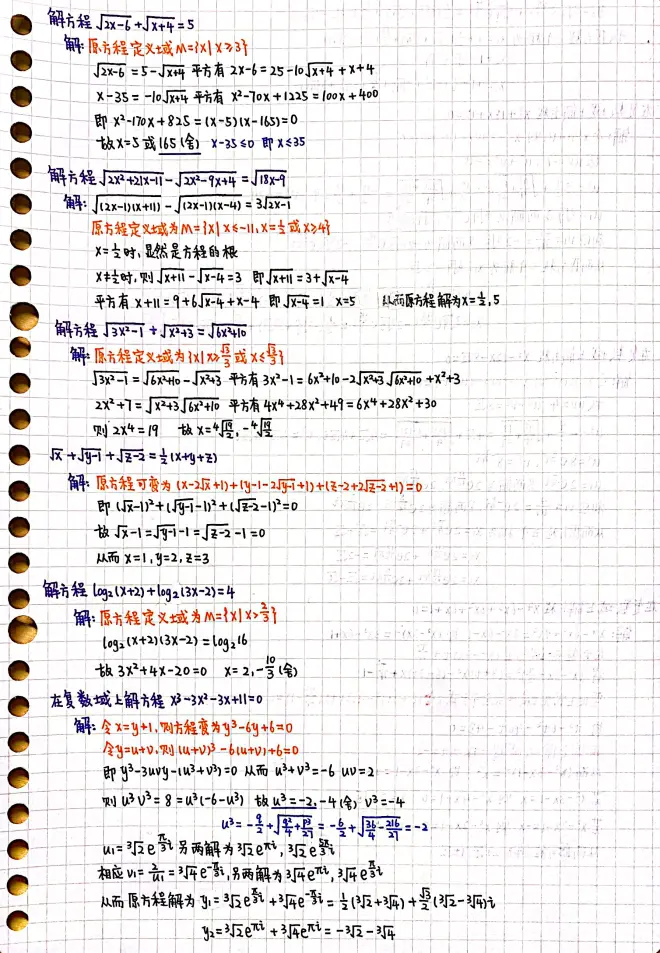 解方程 √(2x-6) + √(x+4) = 5
解: 原方程定义域 M={x|x≥3}
√(2x-6) = 5-√(x+4) 平方有 2x-6 = 25-10√(x+4) + x+4
x-35 = -10√(x+4) 平方有 x²-70x+1225 = 100x+400
即 x²-170x+825 = (x-5)(x-165)=0
故 x=5 或 165(舍) x-35≤0 即 x≤35
解方程 √(2x²+21x-11) - √(2x²-9x+4) = √(18x-9)
解: √((2x-1)(x+11)) - √((2x-1)(x-4)) = 3√(2x-1)
原方程定义域为 M={x|x≤-11, x=½ 或 x≥4}
x=½时, 显然是方程的根
x≠½时, 则 √(x+11) - √(x-4) = 3 即 √(x+11) = 3+√(x-4)
平方有 x+11 = 9+6√(x-4) + x-4 即 √(x-4) = 1 x=5 从而原方程解为 x=½, 5
解方程 √(3x²-1) + √(x²+3) = √(6x²+10)
解: 原方程定义域为 {x|x≥√3/3 或 x≤√3/3}
√(3x²-1) = √(6x²+10) - √(x²+3) 平方有 3x²-1 = 6x²+10-2√(x²+3)√(6x²+10) + x²+3
2x²+7 = √(x²+3)√(6x²+10) 平方有 4x⁴+28x²+49 = 6x⁴+28x²+30
则 2x⁴=19 故 x=⁴√(19/2), -⁴√(19/2)
√x + √(y-1) + √(z-2) = ½(x+y+z)
解: 原方程可变为 (x-2√x+1)+(y-1-2√(y-1)+1)+(z-2+2√(z-2)+1)=0
即 (√x-1)²+(√(y-1)-1)²+(√(z-2)-1)²=0
故 √x-1 = √(y-1)-1 = √(z-2)-1=0
从而 x=1, y=2, z=3
解方程 log₂(x+2)+log₂(3x-2)=4
解: 原方程定义域为 M={x|x>2/3}
log₂(x+2)(3x-2) = log₂16
故 3x²+4x-20=0 x=2, -10/3 (舍)
在复数域上解方程 x³-3x²-3x+11=0
解: 令x=y+1, 则方程变为 y³-6y+6=0
令y=u+v, 则 (u+v)³-6(u+v)+6=0
即 y³-3uvy-(u³+v³)=0 从而 u³+v³=-6 uv=2
则 u³v³=8=u³(-6-u³) 故 u³=-2, -4(舍) v³=-4
u³ = -q/2 + √(q²/4+p³/27) = -6/2 + √(36/4-216/27) = -2
u₁ = ³√2 e^(π/3 i) 另两解为 ³√2 e^(πi), ³√2 e^(5π/3 i)
相应 v₁ = 2/u₁ = ³√4 e^(-π/3 i), 另两解为 ³√4 e^(πi), ³√4 e^(π/3 i)
从而原方程解为 y₁ = ³√2 e^(π/3 i) + ³√4 e^(-π/3 i) = ½(³√2+³√4) + √3/2(³√2-³√4)i
y₂ = ³√2 e^(πi) + ³√4 e^(πi) = -³√2-³√4